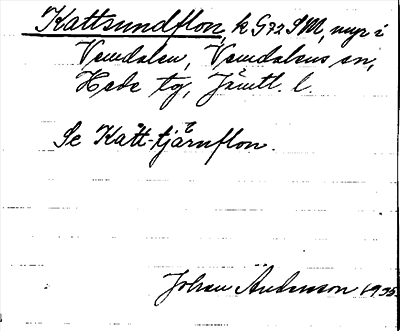 Kattsundflon, k G32 SM, myr i
Vemdalen, Vemdalens sn,
Hede tg, Jämtl. l.
Se Kätt-tjärnflon.
Johan Anderson 1935.